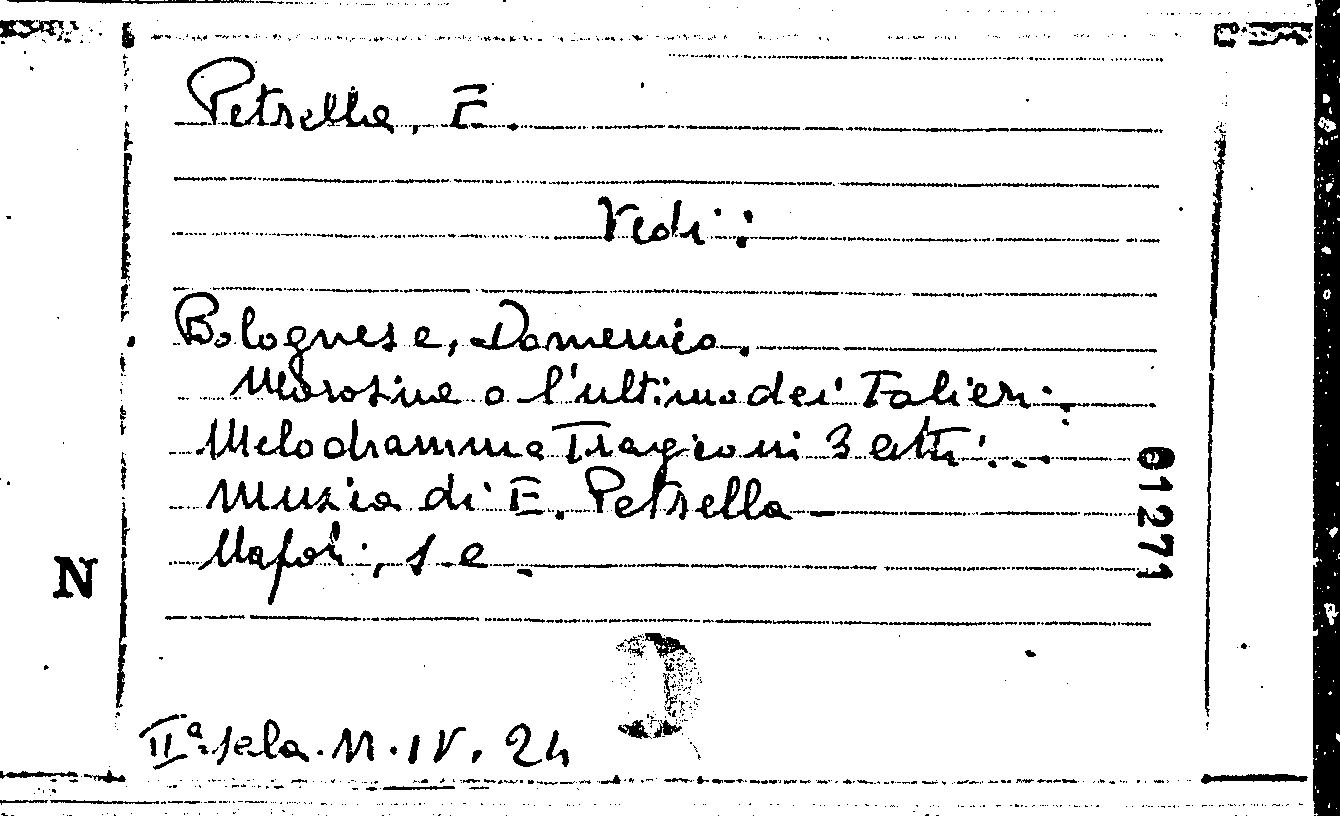 Petrella, E.
Vedi:
Bolognese, Domenico.
Morosina o l'ultimo dei Falieri.
Melodramma Tragico in 3 atti...
Musica di E. Petrella -
Napoli, s.e.
01271
N
IIª sala. M. IV. 24